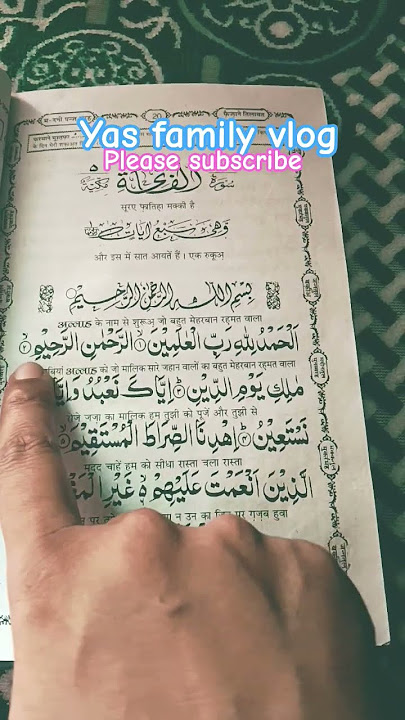 20
Yas family vlog
Please subscribe
سورة الفاتحة مكية
सूरए फ़ातिहा मक्की है
وهي سبع ايات
और इस में सात आयतें हैं। एक रुकूअ़
بسم الله الرحمن الرحيم
के नाम से शुरूअ़ जो बहुत मेहरबान रहमत वाला
اَلْحَمْدُ لِلّٰهِ رَبِّ الْعٰلَمِيْنَ ۝١ الرَّحْمٰنِ الرَّحِيْمِ ۝٢
को जो मालिक सारे जहान वालों का बहुत मेहरबान रहमत वाला
مٰلِكِ يَوْمِ الدِّيْنِ ۝٣ اِيَّاكَ نَعْبُدُ وَاِيَّا
जज़ा का मालिक हम तुझी को पूजें और तुझी से
نَسْتَعِيْنُ ۝٤ اِهْدِنَا الصِّرَاطَ الْمُسْتَقِيْمَ ۝٥
मदद चाहें हम को सीधा रास्ता चला रास्ता
الَّذِيْنَ اَنْعَمْتَ عَلَيْهِمْ ۝٦ غَيْرِ
न उन का जिन पर ग़ज़ब हुवा